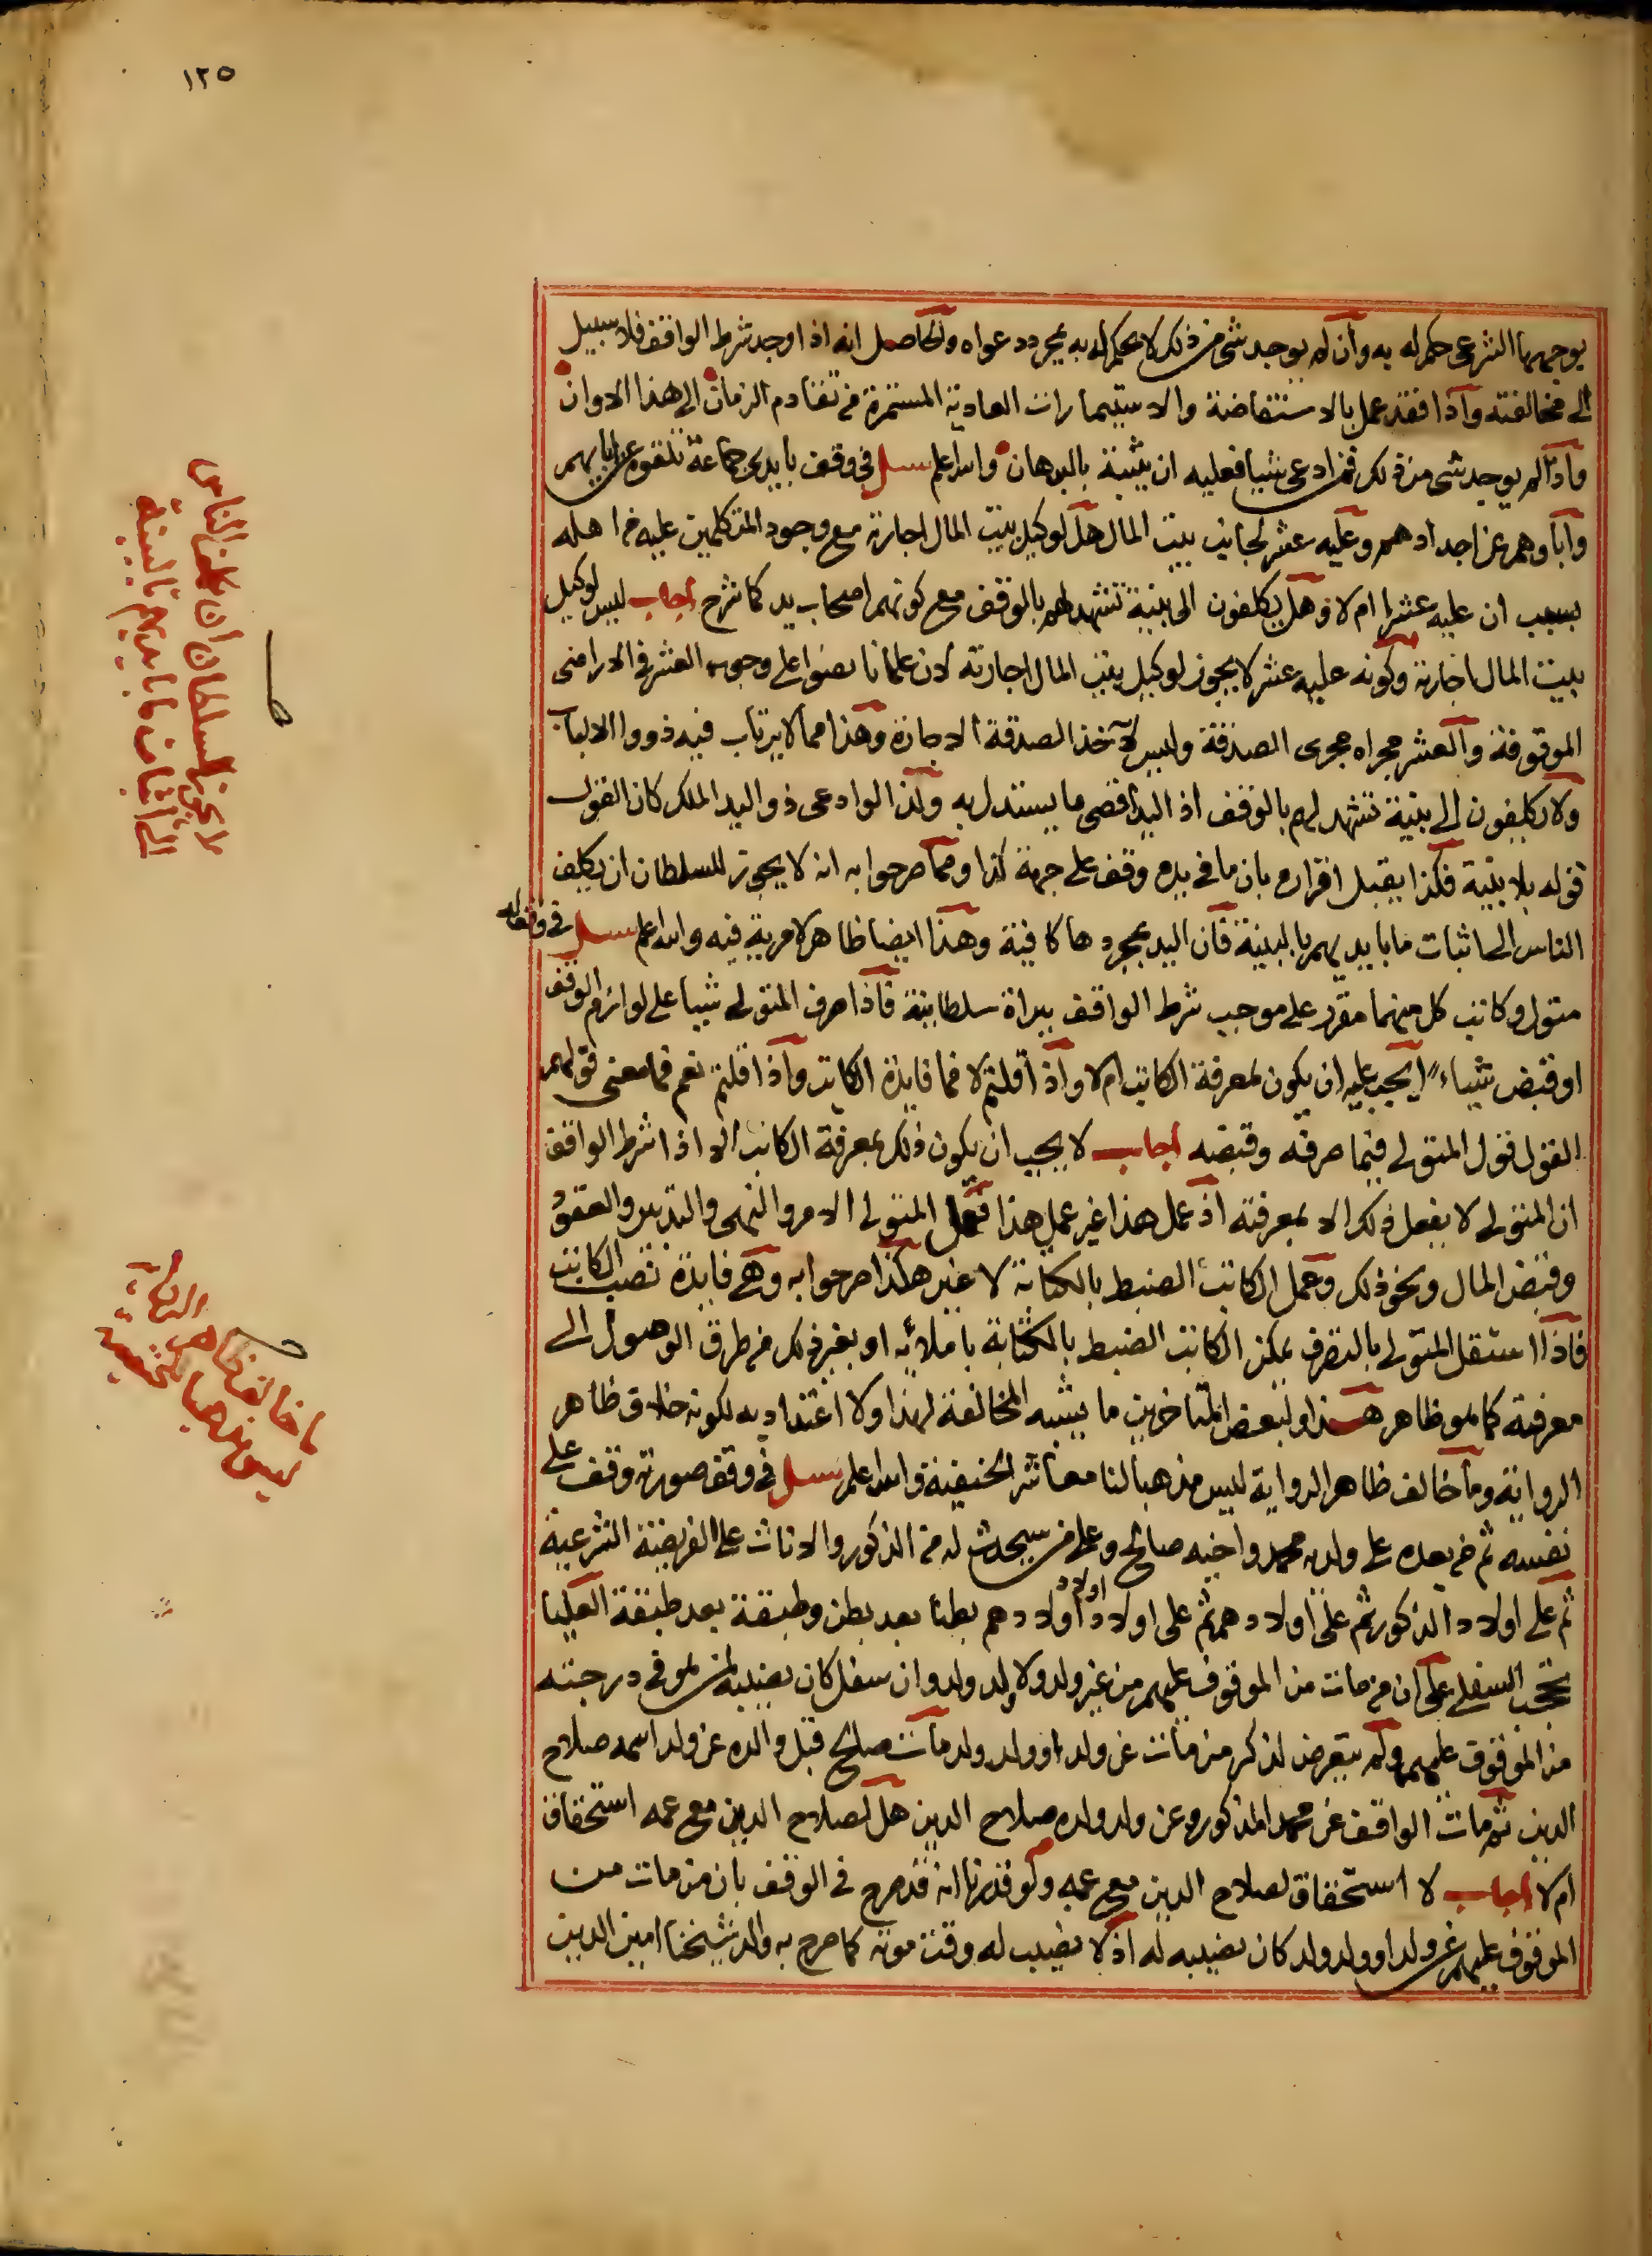 ١٢٥
بوجهها الشرعى حكم له به وان لم يوجد شى من ذلك لا يحكم له به بمجرد دعواه والحاصل انه اذا وجد شرط الواقف فلا سبيل
الى مخالفته واذا فقد عمل بالاستفاضة والاستيمارات العادية المستمرة من تقادم الزمان الى هذا الاوان
واذا لم يوجد شى من ذلك فمن ادعى شيا فعليه ان يثبته بالبرهان والله اعلم سئل فى وقف بايدى جماعة تلقوه عن ابايهم
واباوهم عن اجدادهم وعليه عشر لجانب بيت المال هل لوكيل بيت المال اجارته مع وجود المتكلمين عليه من اهله
بسبب ان عليه عشرا ام لا وهل يكلفون الى بينة تشهد لهم بالوقف مع كونهم اصحاب يد كما شرح اجاب ليس لوكيل
بيت المال اجارته وكونه عليه عشر لا يجوز لوكيل بيت المال اجارته لان علمانا نصوا على وجوب العشر فى الاراضى
الموقوفة والعشر مجراه مجرى الصدقة وليس لآخذ الصدقة الاجارة وهذا مما لا يرتاب فيه ذووا الالباب
ولا يكلفون الى بينة تشهد لهم بالوقف اذ اليد اقصى ما يستدل به ولذا لو ادعى ذو اليد الملك كان القول
قوله بلا بينة فكذا يقبل اقراره بان ما فى يده وقف على جهة كذا ومما صرحوا به انه لا يجوز للسلطان ان يكلف
الناس الى اثبات ما بايديهم بالبينة فان اليد بمجردها كافية وهذا ايضا ظاهر لا مرية فيه والله اعلم سئل فى وقف له
متول وكاتب كل منهما مقرر على موجب شرط الواقف ببراة سلطانية فاذا صرف المتولى شيا على لوازم الوقف
او قبض شيئاء ايجب عليه ان يكون بمعرفة الكاتب ام لا واذا قلتم لا فما فايدة الكاتب واذا قلتم نعم فما معنى قولهم
القول قول المتولى فيما صرفه وقبضه اجاب لا يجب ان يكون ذلك بمعرفة الكاتب الا اذا شرط الواقف
ان المتولى لا يفعل ذلك الا بمعرفته اذ عمل هذا غير عمل هذا فعمل المتولى الامر والنهى والتدبير والعقود
وقبض المال ونحو ذلك وعمل الكاتب الضبط بالكتابة لا غير هكذا صرحوا به وهى فايدة نصب الكاتب
فاذا استقل المتولى بالتصرف يمكن الكاتب الضبط بالكتابة باملائه او بغير ذلك من طرق الوصول الى
معرفته كما هو ظاهر هذا ولبعض المتاخرين ما يشبه المخالفة لهذا ولا اعتداد به لكونه خلاف ظاهر
الرواية وما خالف ظاهر الرواية ليس مذهبا لنا معاشر الحنيفية والله اعلم سئل فى وقف صورته وقف على
نفسه ثم من بعده على ولديه محمد واخيه صالح وعلى من سيحدث له من الذكور والاناث على الفريضة الشرعية
ثم على اولاد الذكور ثم على اولادهم ثم على اولاد اولاد اولادهم بطنا بعد بطن وطبقة بعد طبقة العليا
تحجب السفلى على ان من مات من الموقوف عليهم من غير ولد ولا ولد ولد وان سفل كان نصيبه لمن هو فى درجته
من الموقوف عليهم ولم يتعرض لذكر من مات عن ولد او ولد ولد مات صالح قبل والده عن ولد اسمه صلاح
الدين ثم مات الواقف عن محمد المذكور وعن ولد ولده صلاح الدين هل لصلاح الدين مع عمه استحقاق
ام لا اجاب لا استحقاق لصلاح الدين مع عمه ولو قدرنا انه قد صرح فى الوقف بان من مات من
الموقوف عليهم عن ولد او ولد ولد كان نصيبه له اذ لا نصيب له وقت موته كما صرح به والد شيخنا امين الدين
لا يجوز للسلطان ان يكلف الناس
الى اثبات ما بايديهم بالبينة
ما خالف ظاهر الرواية
ليس مذهبا للحنفية